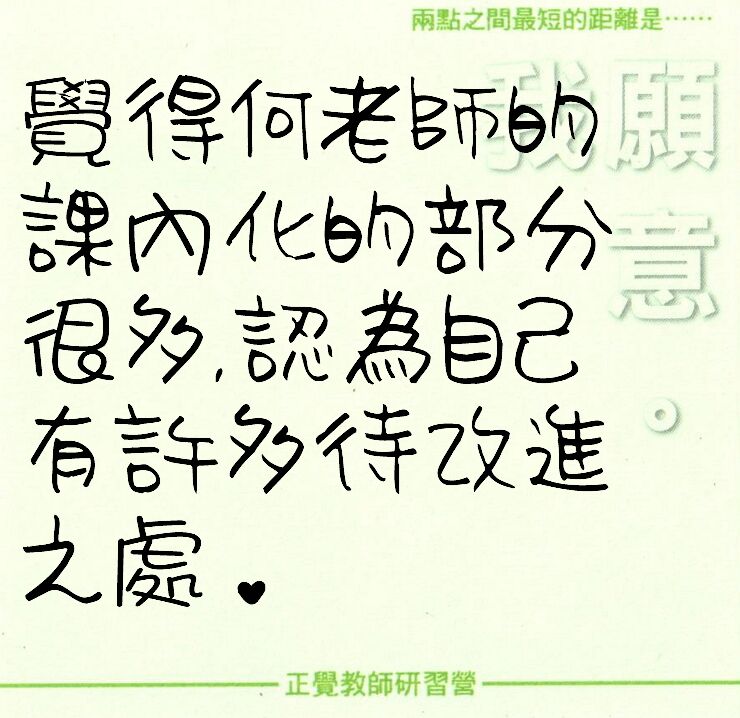 兩點之間最短的距離是⋯⋯
我願意。
覺得何老師的
課內化的部分
很多,認為自己
有許多待改進
之處。♥
正覺教師研習營